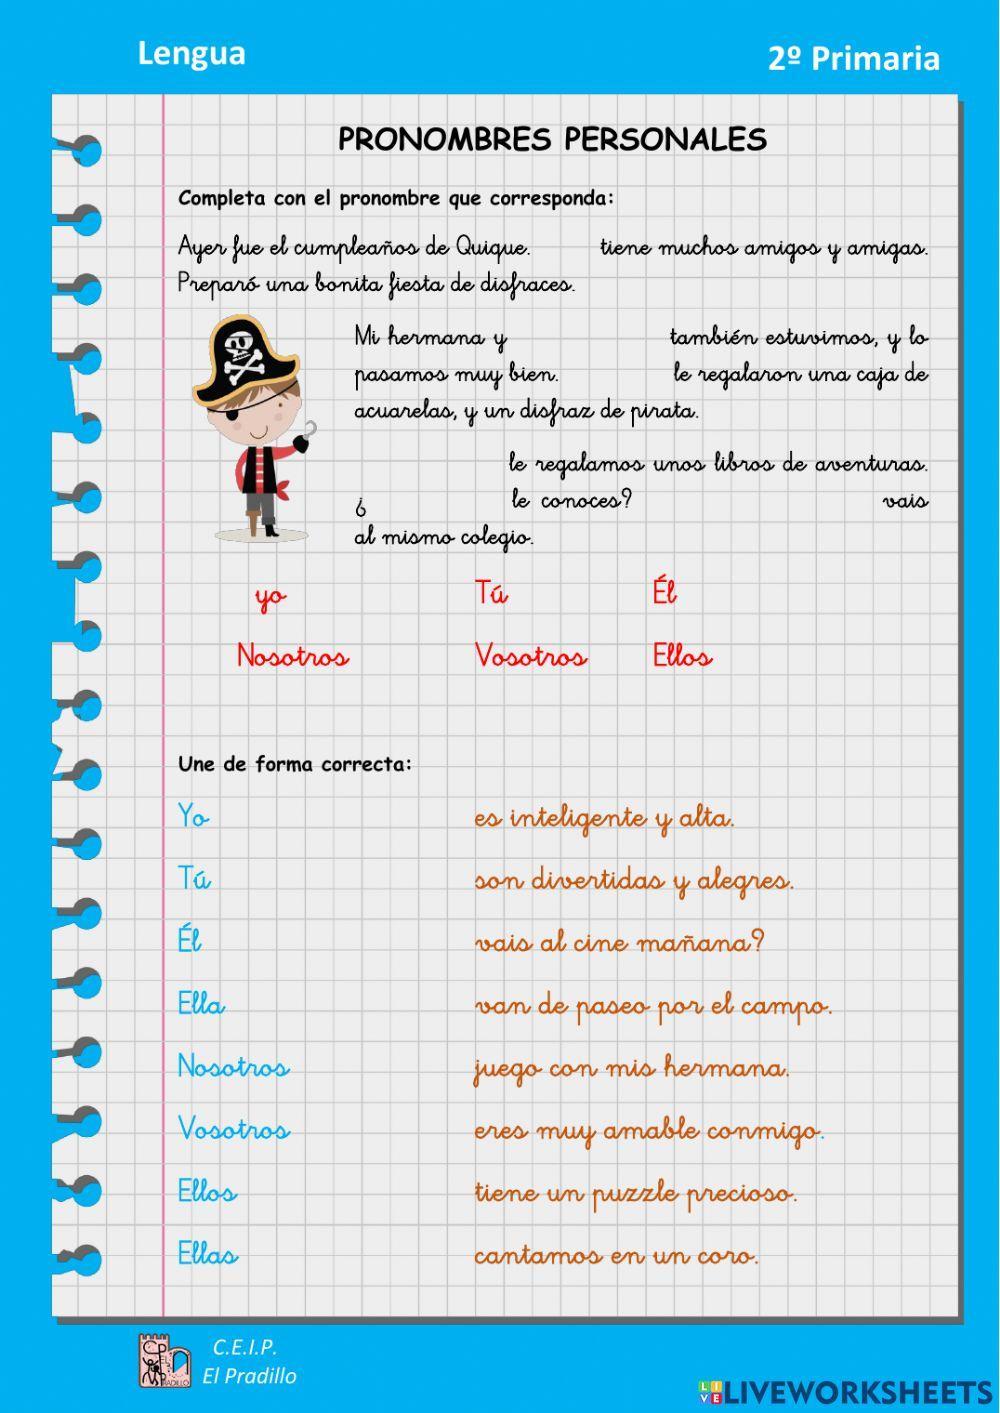 Lengua
2º Primaria
PRONOMBRES PERSONALES
Completa con el pronombre que corresponda:
Ayer fue el cumpleaños de Quique. tiene muchos amigos y amigas.
Preparó una bonita fiesta de disfraces.
Mi hermana y también estuvimos, y lo
pasamos muy bien. le regalaron una caja de
acuarelas, y un disfraz de pirata.
le regalamos unos libros de aventuras.
¿ le conoces? vais
al mismo colegio.
yo Tú Él
Nosotros Vosotros Ellos
Une de forma correcta:
Yo es inteligente y alta.
Tú son divertidas y alegres.
Él vais al cine mañana?
Ella van de paseo por el campo.
Nosotros juego con mis hermana.
Vosotros eres muy amable conmigo.
Ellos tiene un puzzle precioso.
Ellas cantamos en un coro.
C.E.I.P.
El Pradillo
LIVEWORKSHEETS